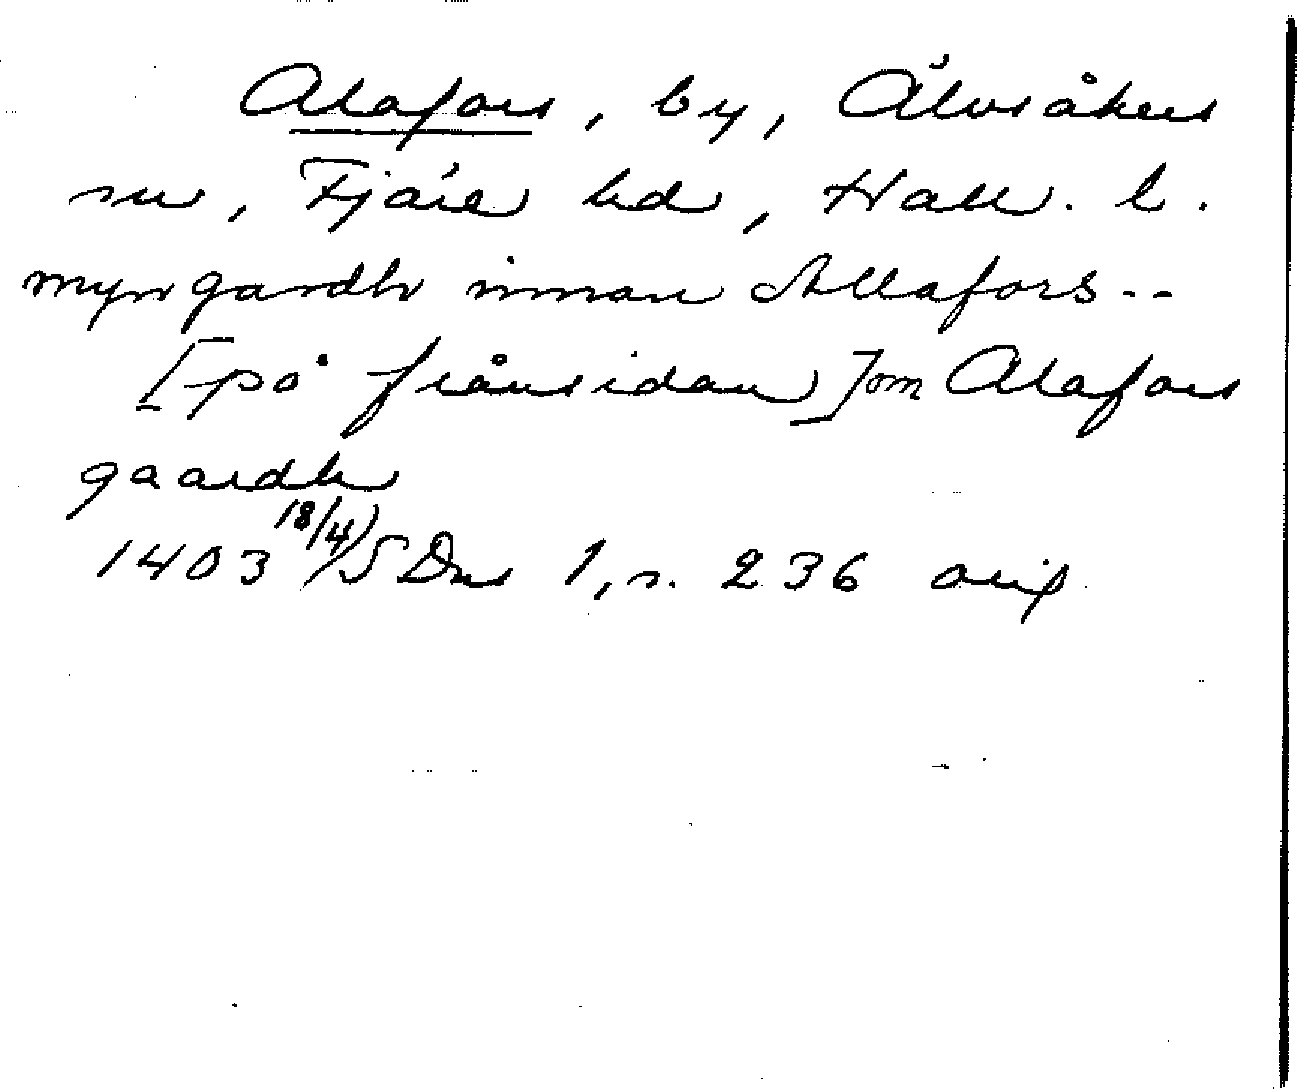 Alafors, by, Älvsåkers
sn, Fjäre hd, Hall. l.
myn gardh innan Allafors--
[på frånsidan] om Alafors
gaardh
1403 18/4 SDns 1, s. 236 orig